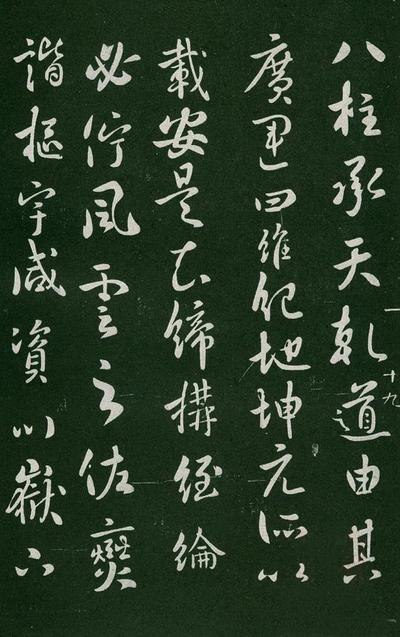 八柱承天乾道由其
一十九
廣運四維紀地坤元所以
載安是知締構經綸
必佇風雲之佐燮
諧樞宇咸資川嶽